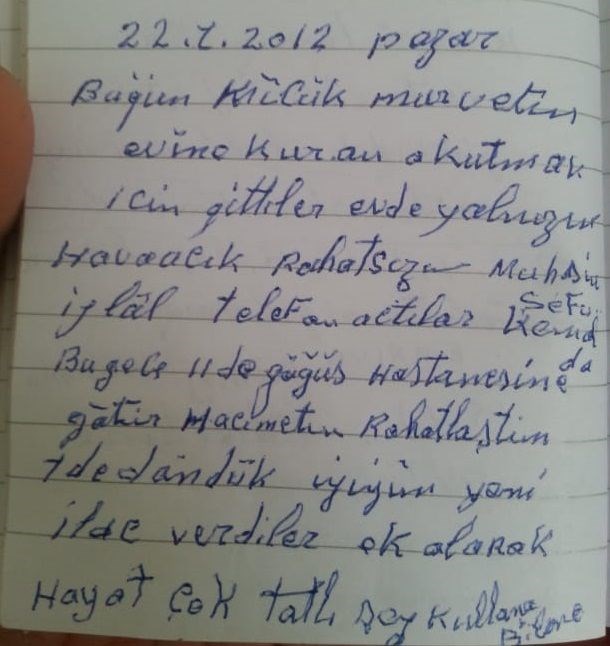 22.1.2012 pazar
Bugün Küçük murvetin
evine Kuran okutmak
icin gittiler evde yalnızım
Havaacık Rahatsızım Muhsin
iglâl telefon actılar Kemal Sefa da
Bugece 11 de göğüs Hastanesine
Rahatlaştım
1 de döndük iyiyim yeni
ilac verdiler ek olarak
Hayat Çok Tatlı şey Kullana Bilene